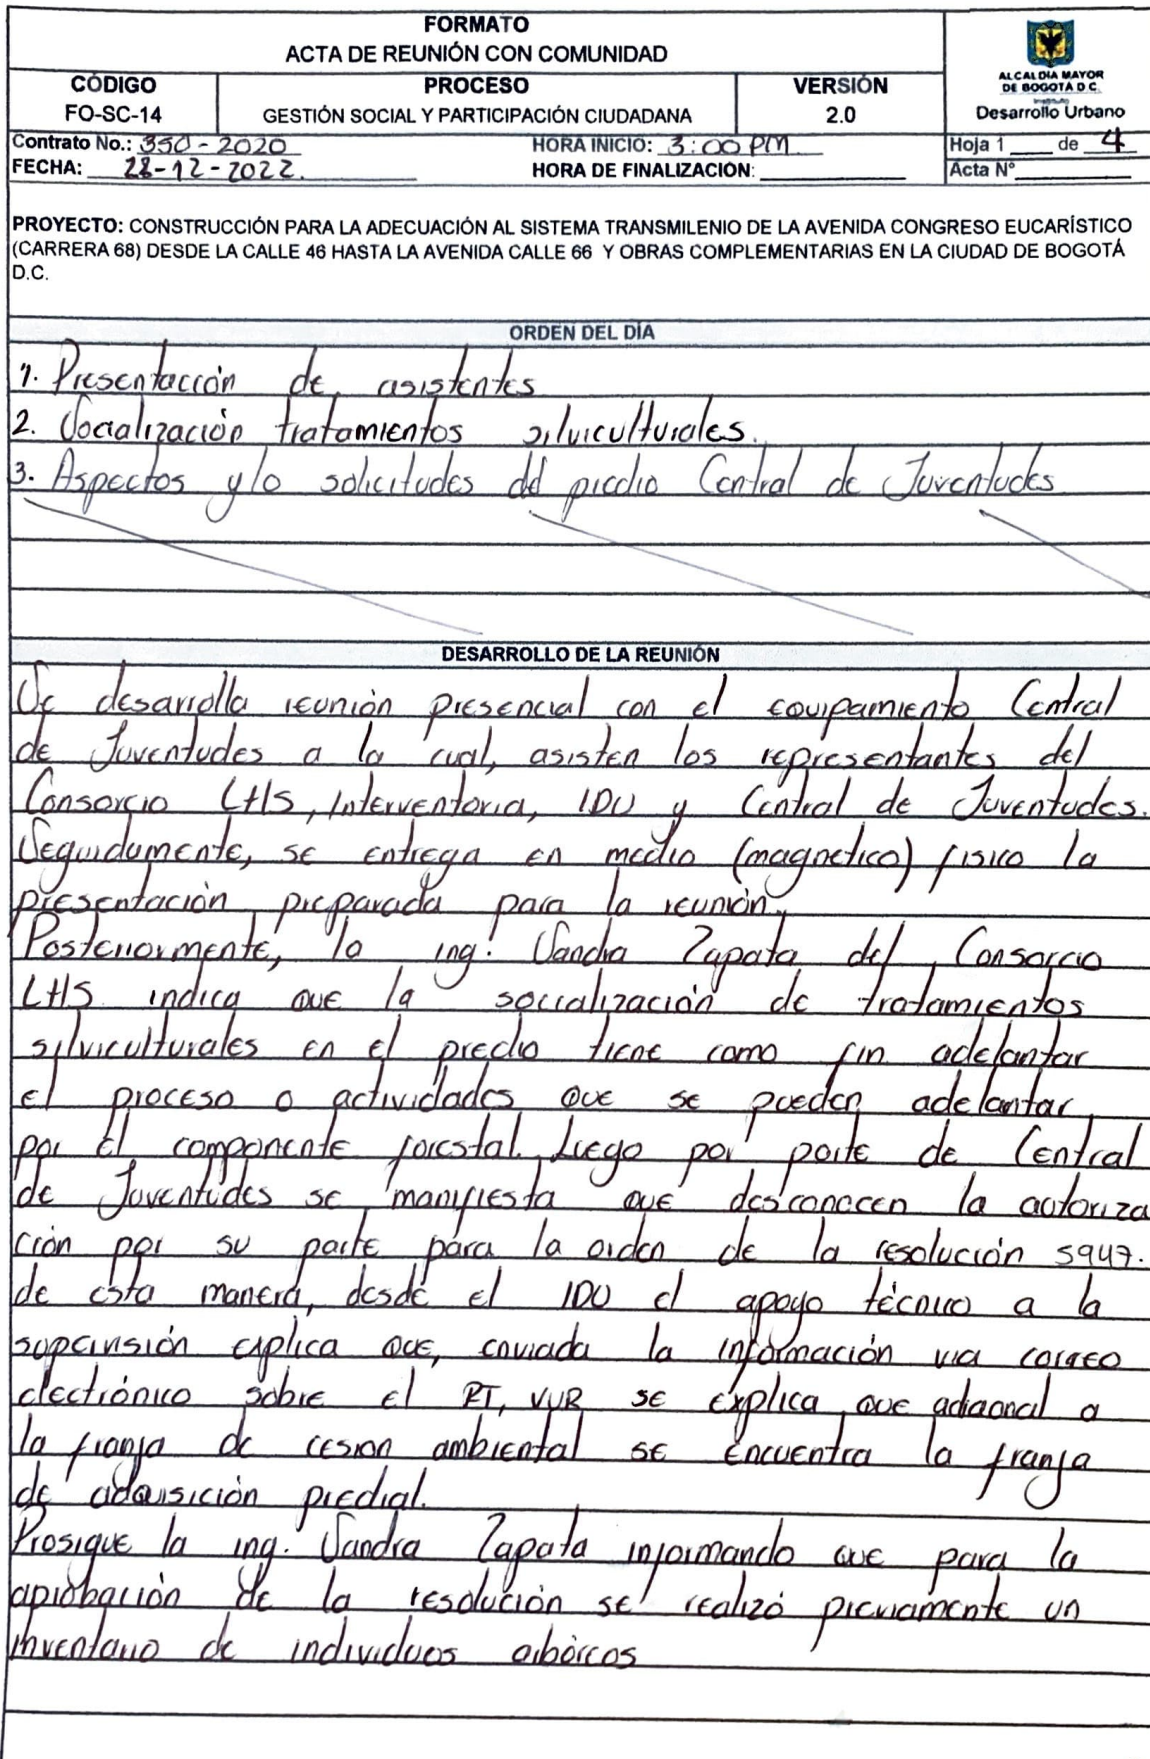 FORMATO
ACTA DE REUNIÓN CON COMUNIDAD
CÓDIGO
FO-SC-14
PROCESO
GESTIÓN SOCIAL Y PARTICIPACIÓN CIUDADANA
VERSIÓN
2.0
ALCALDIA MAYOR
DE BOGOTA D.C.
Instituto
Desarrollo Urbano
Contrato No.: 350-2020
HORA INICIO: 3:00 PM
Hoja 1 ___ de 4
FECHA: 28-12-2022.
HORA DE FINALIZACION: ______
Acta N° ______
PROYECTO: CONSTRUCCIÓN PARA LA ADECUACIÓN AL SISTEMA TRANSMILENIO DE LA AVENIDA CONGRESO EUCARÍSTICO
(CARRERA 68) DESDE LA CALLE 46 HASTA LA AVENIDA CALLE 66 Y OBRAS COMPLEMENTARIAS EN LA CIUDAD DE BOGOTÁ
D.C.
ORDEN DEL DÍA
1. Presentación de asistentes
2. Socialización tratamientos silviculturales.
3. Aspectos y/o solicitudes del predio Central de Juventudes
DESARROLLO DE LA REUNIÓN
Se desarrolla reunión presencial con el equipamiento Central
de Juventudes a la cual, asisten los representantes del
Consorcio LHS, Interventoria, IDU y Central de Juventudes.
Seguidamente, se entrega en medio (magnetico) fisico la
presentación preparada para la reunión.
Posteriormente, la ing. Sandra Zapata del Consorcio
LHS indica que la socialización de tratamientos
silviculturales en el predio tiene como fin adelantar
el proceso o actividades que se pueden adelantar
por el componente forestal. Luego por parte de Central
de Juventudes se manifiesta que desconocen la autoriza
ción por su parte para la orden de la resolución 5947.
de esta manera, desde el IDU el apoyo técnico a la
supervisión explica que, enviada la información via correo
electrónico sobre el RT, VUR se explica que adicional a
la franja de cesion ambiental se encuentra la franja
de adquisición predial.
Prosigue la ing. Sandra Zapata informando que para la
aprobación de la resolución se realizó previamente un
inventario de individuos arbóreos